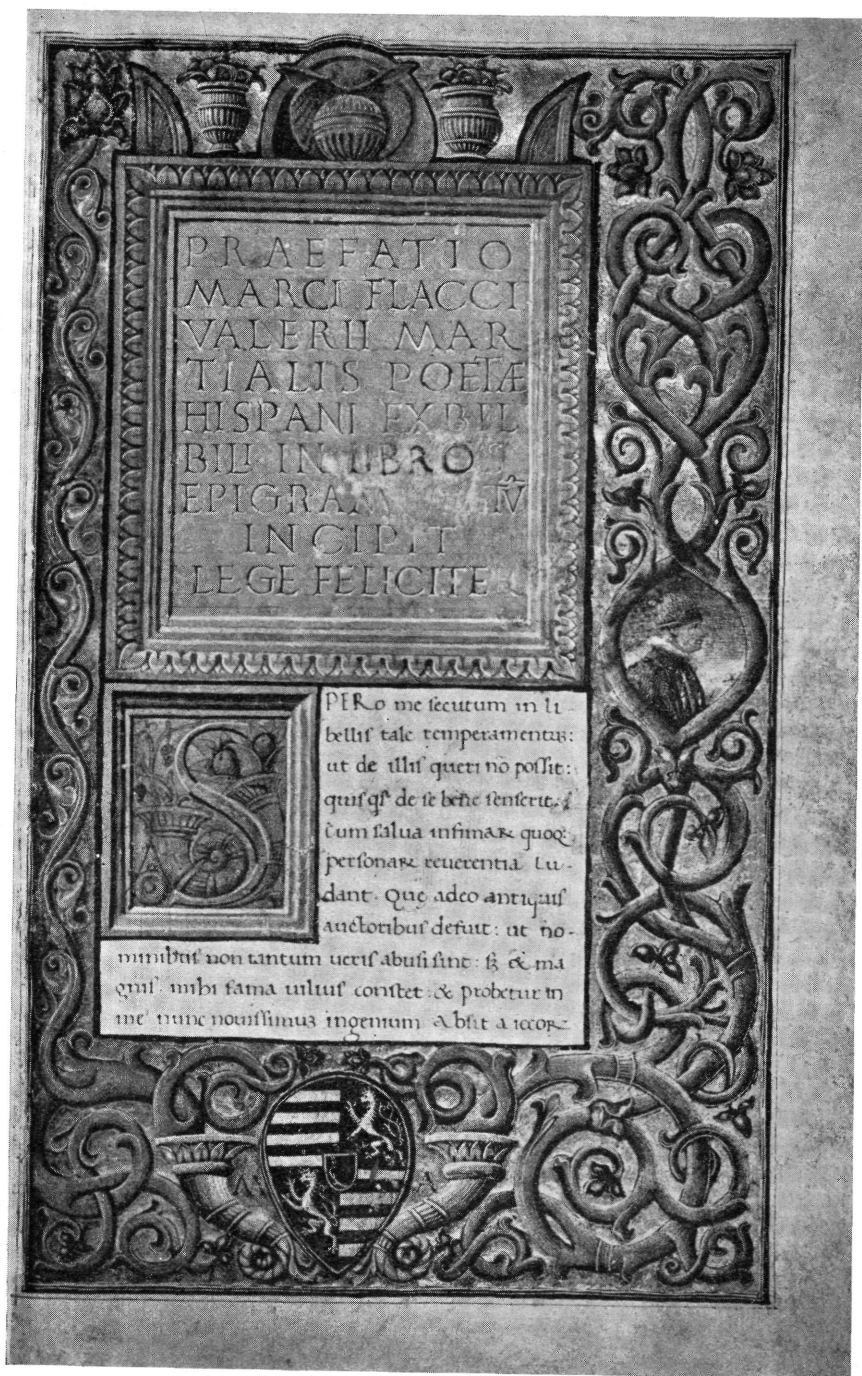 PRAEFATIO
MARCI FLACCI
VALERII MAR
TIALIS POETÆ
HISPANI EX BIL
BILI IN LIBRO
EPIGRAM
INCIPIT
LEGE FELICITER
SPERO me secutum in li-
bellis tale temperamentuꝫ:
ut de illis queri nō possit:
quisqs de se bene senserit.
cum salua infimaꝝ quoqꝫ
personaꝝ reuerentia lu-
dant. Quę adeo antiquis
auctoribus defuit: ut no-
minibus non tantum ueris abusi sint: sꝫ & ma
gnis. mihi fama uilius constet: & probetur in
me nunc nouissimuꝫ ingenium. Absit a iocoꝝ